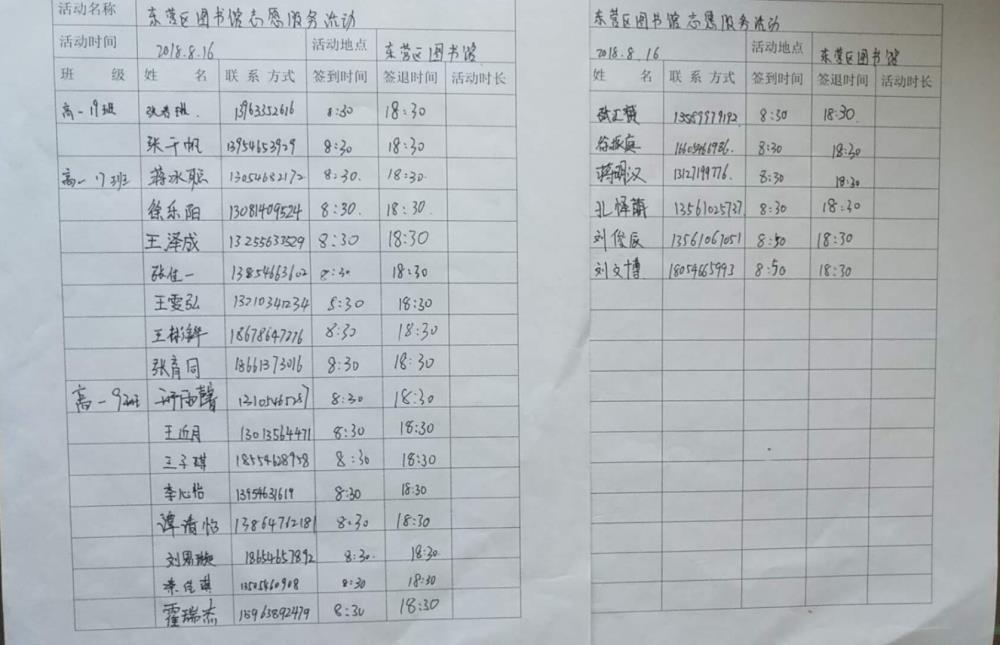 活动名称 东营区图书馆志愿服务流动
活动时间 2018.8.16 活动地点 东营区图书馆
班 级 姓 名 联 系 方式 签到时间 签退时间 活动时长
高一19班 13963352616 8:30 18:30
张千帆 13954653929 8:30 18:30
高一17班 蒋冰聪 13054682172 8:30 18:30
徐乐阳 13081409524 8:30 18:30
王泽成 13255633529 8:30 18:30
张佳一 13854663602 8:30 18:30
王雯弘 13210341234 8:30 18:30
王彬 18678647276 8:30 18:30
张育同 13661373016 8:30 18:30
高一9班 8:30 18:30
王近月 13013564471 8:30 18:30
王子琪 18554628958 8:30 18:30
李心怡 13954631619 8:30 18:30
谭清怡 13864762181 8:30 18:30
18654657892 8:30 18:30
8:30 18:30
霍瑞杰 15963892479 8:30 18:30
东营区图书馆志愿服务流动
2018.8.16 活动地点 东营区图书馆
姓 名 联 系 方式 签到时间 签退时间 活动时长
13589979192 8:30 18:30
徐振真 8:30 18:30
蒋明汉 13127199776 8:30 18:30
孔怿萌 13561025737 8:30 18:30
刘俊辰 13561061051 8:50 18:30
刘文博 18054665993 8:50 18:30